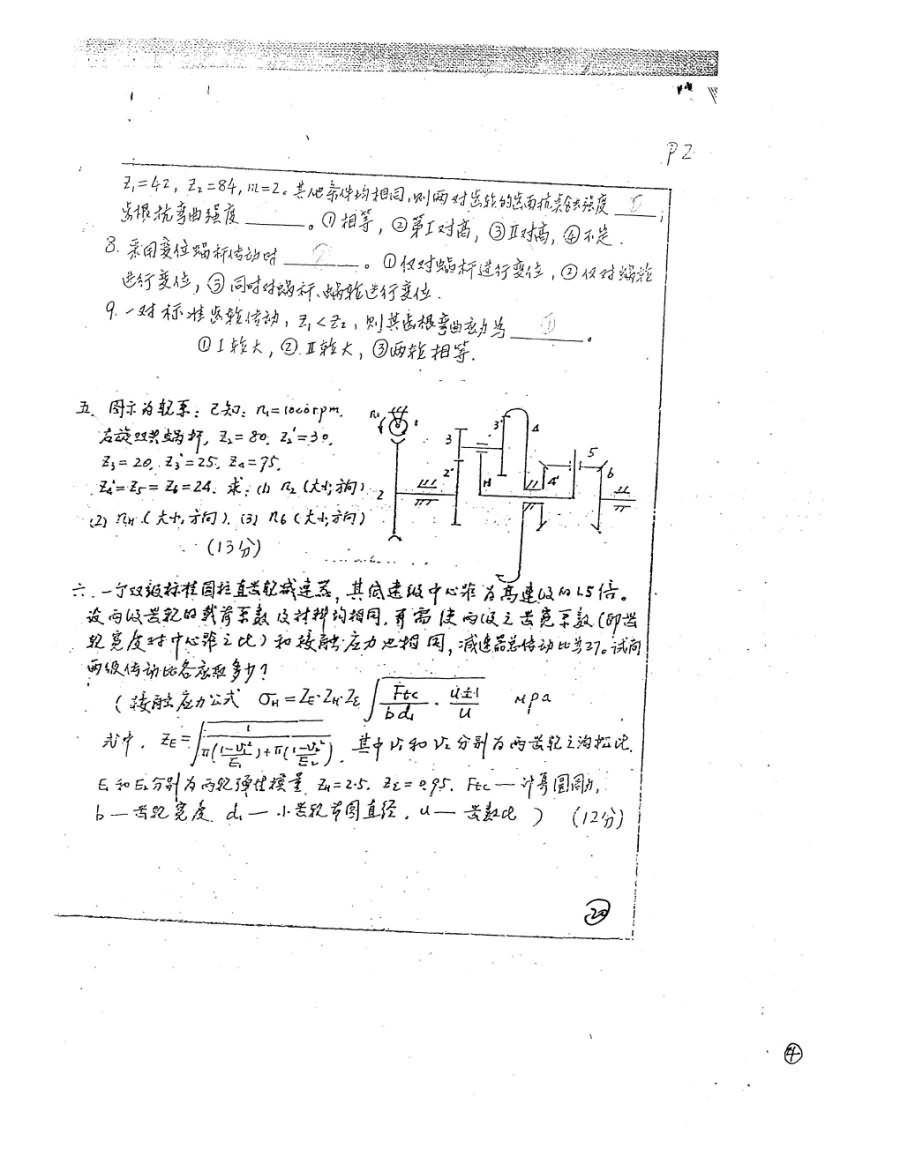 P2
Z₁=42, Z₂=84, m=2。其他条件均相同,则两对齿轮的齿面抗点蚀强度 ① ;
齿根抗弯曲强度 ______。①相等,②第I对高,③II对高,④不定.
8. 采用变位蜗杆传动时 ② 。①仅对蜗杆进行变位,②仅对蜗轮
进行变位,③同时对蜗杆、蜗轮进行变位.
9. 一对标准齿轮传动,Z₁<Z₂,则其齿根弯曲应力为 ① 。
①I较大,②II较大,③两轮相等.
五、图示为轮系:已知:n₁=1000rpm.
右旋双头蜗杆, Z₂=80. Z₂'=30.
Z₃=20. Z₃'=25. Z₄=75.
Z₄'=Z₅=Z₆=24. 求:(1) n₂(大小,方向)
(2) n_H(大小,方向). (3) n₆(大小,方向)
(13分)
n₁
1
2
2'
3
3'
H
4
4'
5
6
六.一个双级标准圆柱直齿轮减速器,其低速级中心距为高速级的1.5倍。
设两级齿轮的载荷系数及材料均相同.若需使两级之齿宽系数(即齿
轮宽度对中心距之比)和接触应力也相同,减速器总传动比为27。试问
两级传动比各应取多少?
(接触应力公式 σ_H=Z_E·Z_H·Z_ε√(Ftc/bd₁ · (u±1)/u) MPa
式中. Z_E=√(1/(π((1-υ₁²)/E₁)+π((1-υ₂²)/E₂))). 其中υ₁和υ₂分别为两齿轮之泊松比.
E₁和E₂分别为两轮弹性模量. Z_H=2.5. Z_ε=0.95. Ftc—计算圆周力,
b—齿轮宽度. d₁—小齿轮节圆直径. u—齿数比 ) (12分)
20
④